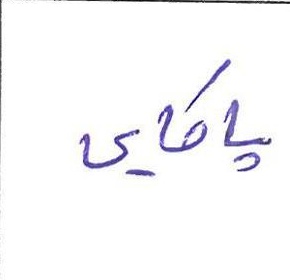 پاکای